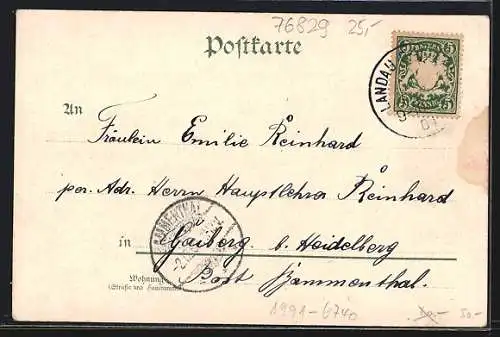 76829 25,-
Postkarte
LANDAU
5 5
5 PFENNIG 5
01
An
Fräulein Emilie Reinhard
per. Adr. Herrn Hauptlehrer Reinhard
in Gaiberg b. Heidelberg
Post Bammenthal.
BAMMENTHAL
Wohnung
(Straße und Hausnummer)
1991-6740
50.-